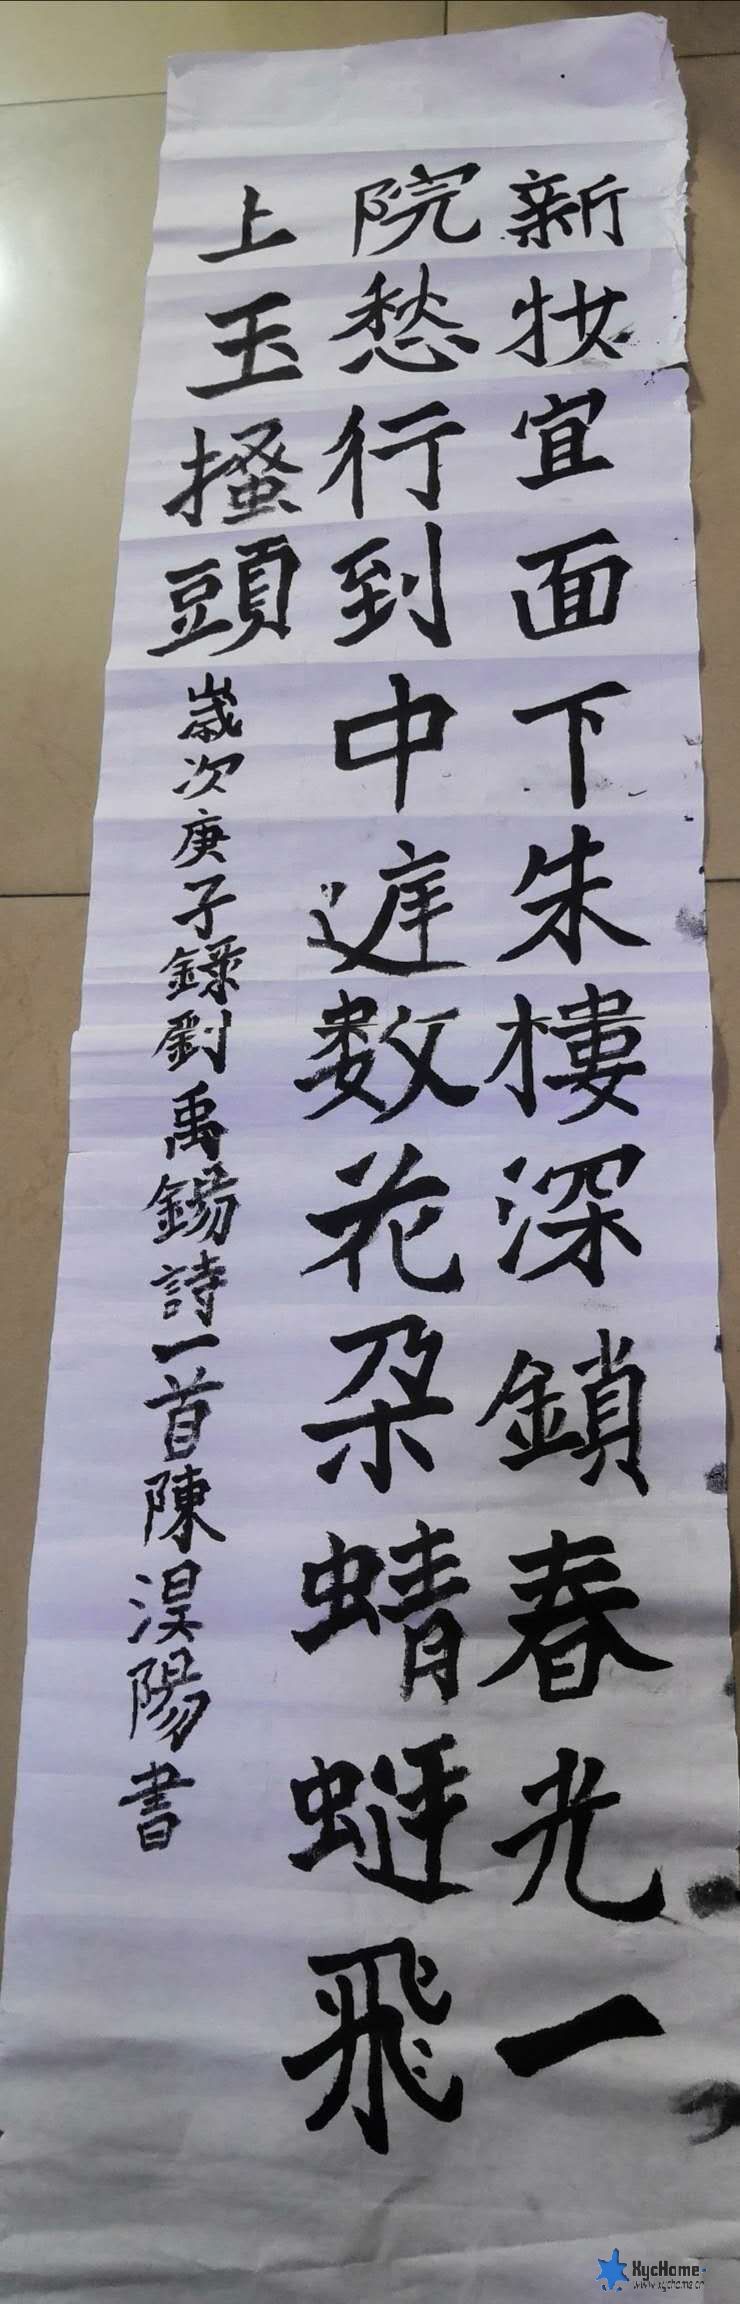 新妝宜面下朱樓深鎖春光一
院愁行到中庭数花朵蜻蜓飛
上玉搔頭
歲次庚子錄劉禹錫詩一首陳淏陽書
XycHome
www.xychome.cn